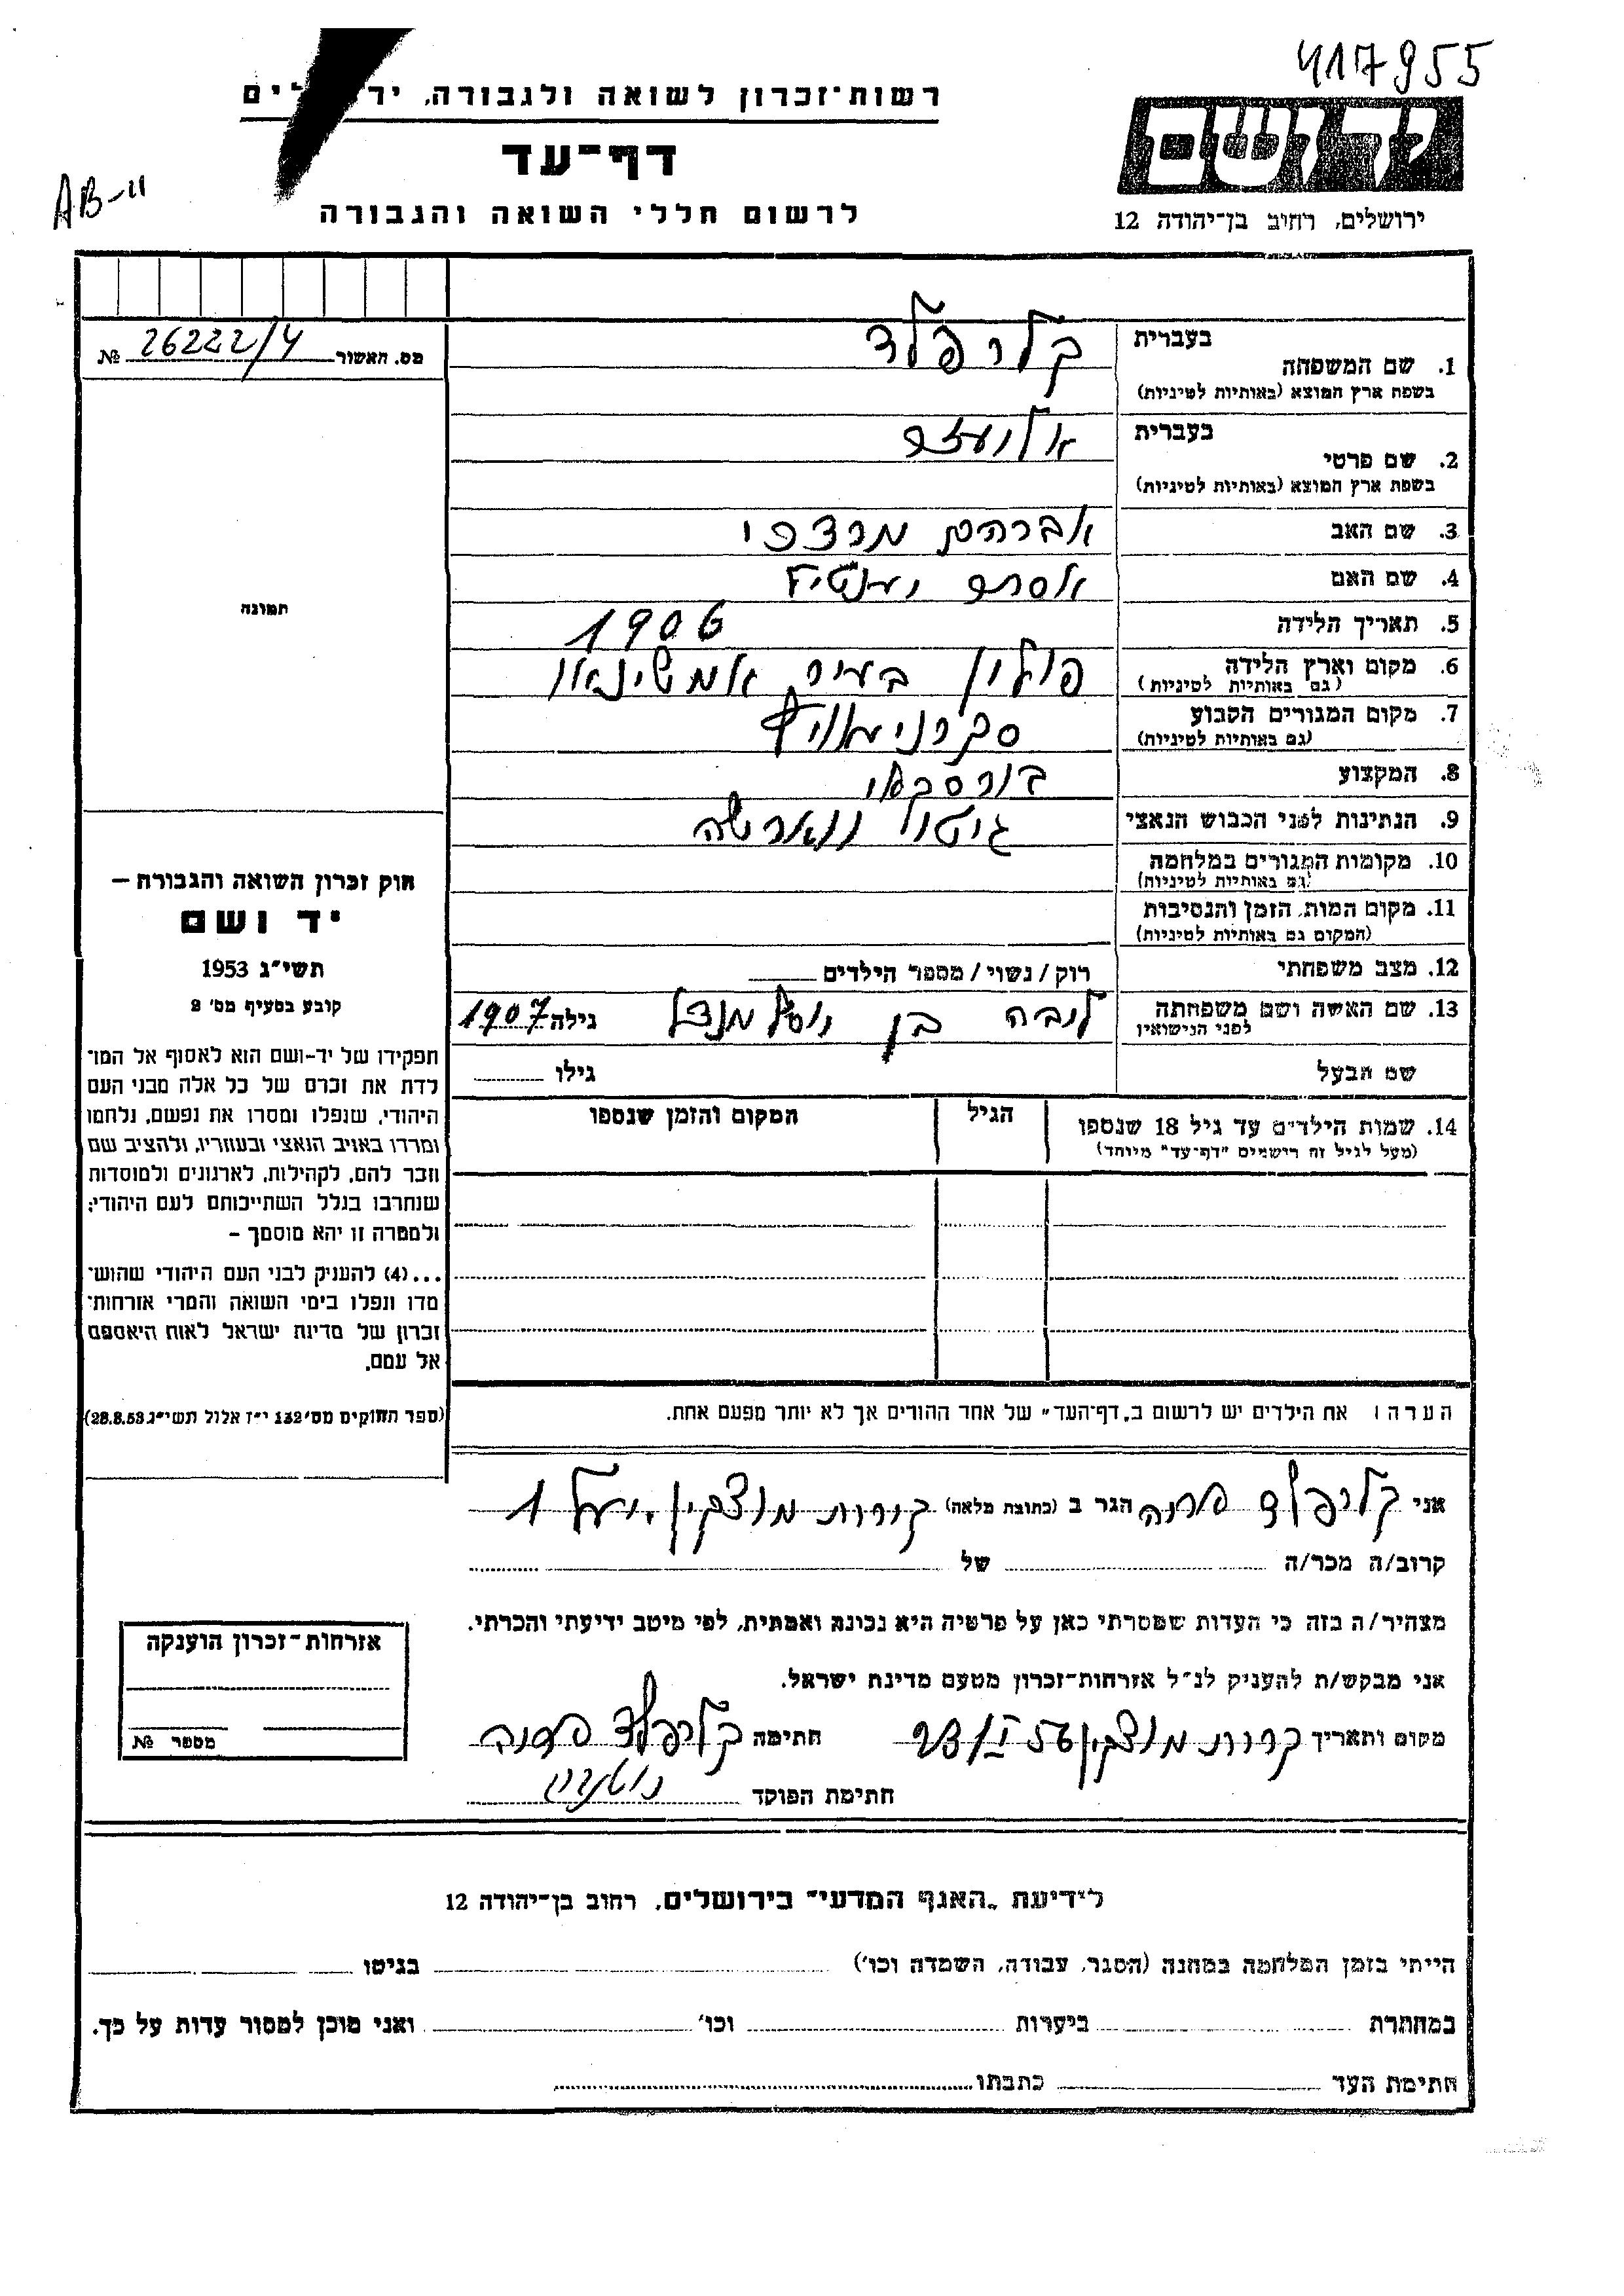 417955
רשות־זכרון לשואה ולגבורה,
דף־עד
לרשום חללי השואה והגבורה
AB-11
יד ושם
ירושלים, רחוב בן־יהודה 12
מס. האשור 26222/4 №
בעברית
1. שם המשפחה קלרפלד
בשפת ארץ המוצא (באותיות לטיניות)
בעברית
2. שם פרטי
בשפת ארץ המוצא (באותיות לטיניות)
3. שם האב אברהם
4. שם האם
5. תאריך הלידה 1906
6. מקום וארץ הלידה פולין בעיר אמשינאוו
(גם באותיות לטיניות)
7. מקום המגורים הקבוע
(גם באותיות לטיניות)
8. המקצוע בורסקאי
9. הנתינות לפני הכבוש הנאצי גיטו ווארשה
10. מקומות המגורים במלחמה
(גם באותיות לטיניות)
11. מקום המות, הזמן והנסיבות
(המקום גם באותיות לטיניות)
12. מצב משפחתי רוק / נשוי / מספר הילדים
13. שם האשה ושם משפחתה ליבה בן גילה 1907
לפני הנישואין
שם הבעל גילו
14. שמות הילדים עד גיל 18 שנספו הגיל המקום והזמן שנספו
(מעל לגיל זה רישמים "דף־עד" מיוחד)
תמונה
חוק זכרון השואה והגבורה –
יד ושם
תשי"ג 1953
קובע בסעיף מס' 2
תפקידו של יד-ושם הוא לאסוף אל המו־
לדת את זכרם של כל אלה מבני העם
היהודי, שנפלו ומסרו את נפשם, נלחמו
ומרדו באויב הנאצי ובעוזריו, ולהציב שם
וזכר להם, לקהילות, לארגונים ולמוסדות
שנחרבו בגלל השתייכותם לעם היהודי;
ולמטרה זו יהא מוסמך –
...(4) להעניק לבני העם היהודי שהוש־
מדו ונפלו בימי השואה והמרי אזרחות־
זכרון של מדינת ישראל לאות היאספם
אל עמם.
(ספר החוקים מס' 132 י"ז אלול תשי"ג 28.8.53)
הערה: את הילדים יש לרשום ב„דף־העד" של אחד ההורים אך לא יותר מפעם אחת.
אני קלרפלד פרנה הגר ב (כתובת מלאה) קרית מוצקין, יעל 1
קרוב/ה מכר/ה של
מצהיר/ה בזה כי העדות שמסרתי כאן על פרטיה היא נכונה ואמתית, לפי מיטב ידיעתי והכרתי.
אני מבקש/ת להעניק לנ"ל אזרחות־זכרון מטעם מדינת ישראל.
מקום ותאריך קרית מוצקין 23/I 56 חתימה קלרפלד פרנה
חתימת הפוקד
אזרחות־זכרון הוענקה
מספר №
לידיעת „האגף המדעי" בירושלים, רחוב בן־יהודה 12
הייתי בזמן המלחמה במחנה (הסגר, עבודה, השמדה וכו') בגיטו
במחתרת ביערות וכו' ואני מוכן למסור עדות על כך.
חתימת העד כתבתו